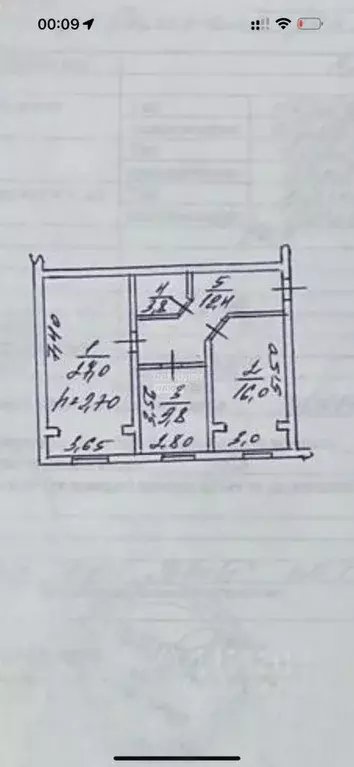 00:09
4
3,8
5
12,4
7,40
1
27,0
h=2,70
2
16,0
5,50
3
9,8
3,65
2,80
3,0